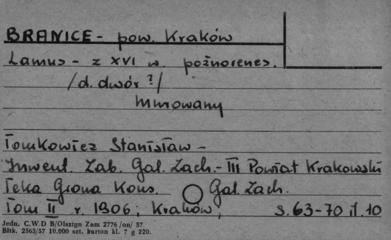 BRANICE - pow. Kraków
Lamus - z XVI w. poźnorenes.
/d. dwór?/
Murowany
Tomkowicz Stanisław -
Inwent. Zab. Gal. Zach. - III Powiat Krakowski
Teka Grona Kons. Gal. Zach.
Tom II r. 1906; Kraków, s. 63-70 il. 10
Jedn. C.W.D B/Olsztyn Zam 2776 /on/ 57
Bltk. 2563/57 10.000 szt. karton kl. ? g 220.